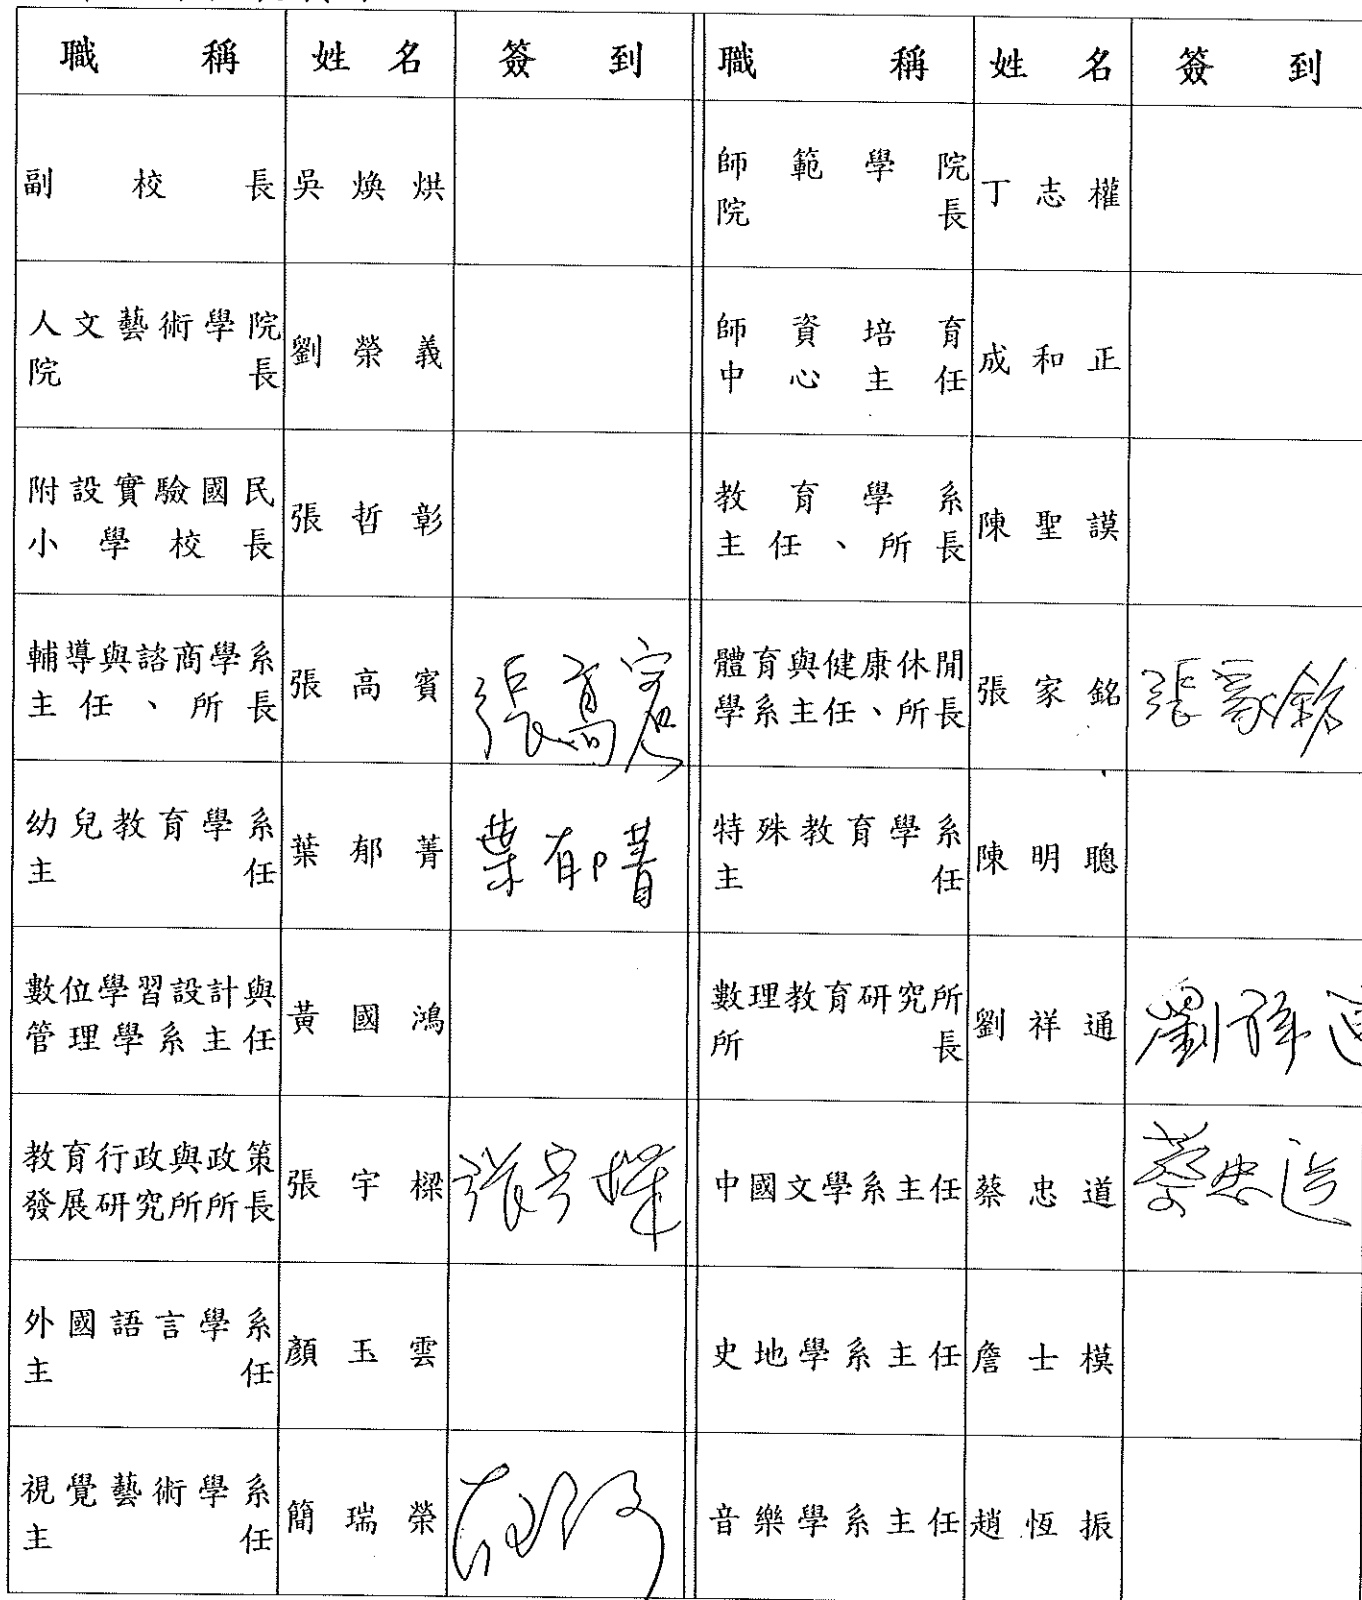 職稱 姓名 簽到 職稱 姓名 簽到
副校長 吳煥烘 師範學院
院長 丁志權
人文藝術學院
院長 劉榮義 師資培育
中心主任 成和正
附設實驗國民
小學校長 張哲彰 教育學系
主任、所長 陳聖謨
輔導與諮商學系
主任、所長 張高賓 張高賓 體育與健康休閒
學系主任、所長 張家銘 張家銘
幼兒教育學系
主任 葉郁菁 葉郁菁 特殊教育學系
主任 陳明聰
數位學習設計與
管理學系主任 黃國鴻 數理教育研究所
所長 劉祥通 劉祥通
教育行政與政策
發展研究所所長 張宇樑 張宇樑 中國文學系主任 蔡忠道 蔡忠道
外國語言學系
主任 顏玉雲 史地學系主任 詹士模
視覺藝術學系
主任 簡瑞榮 音樂學系主任 趙恆振